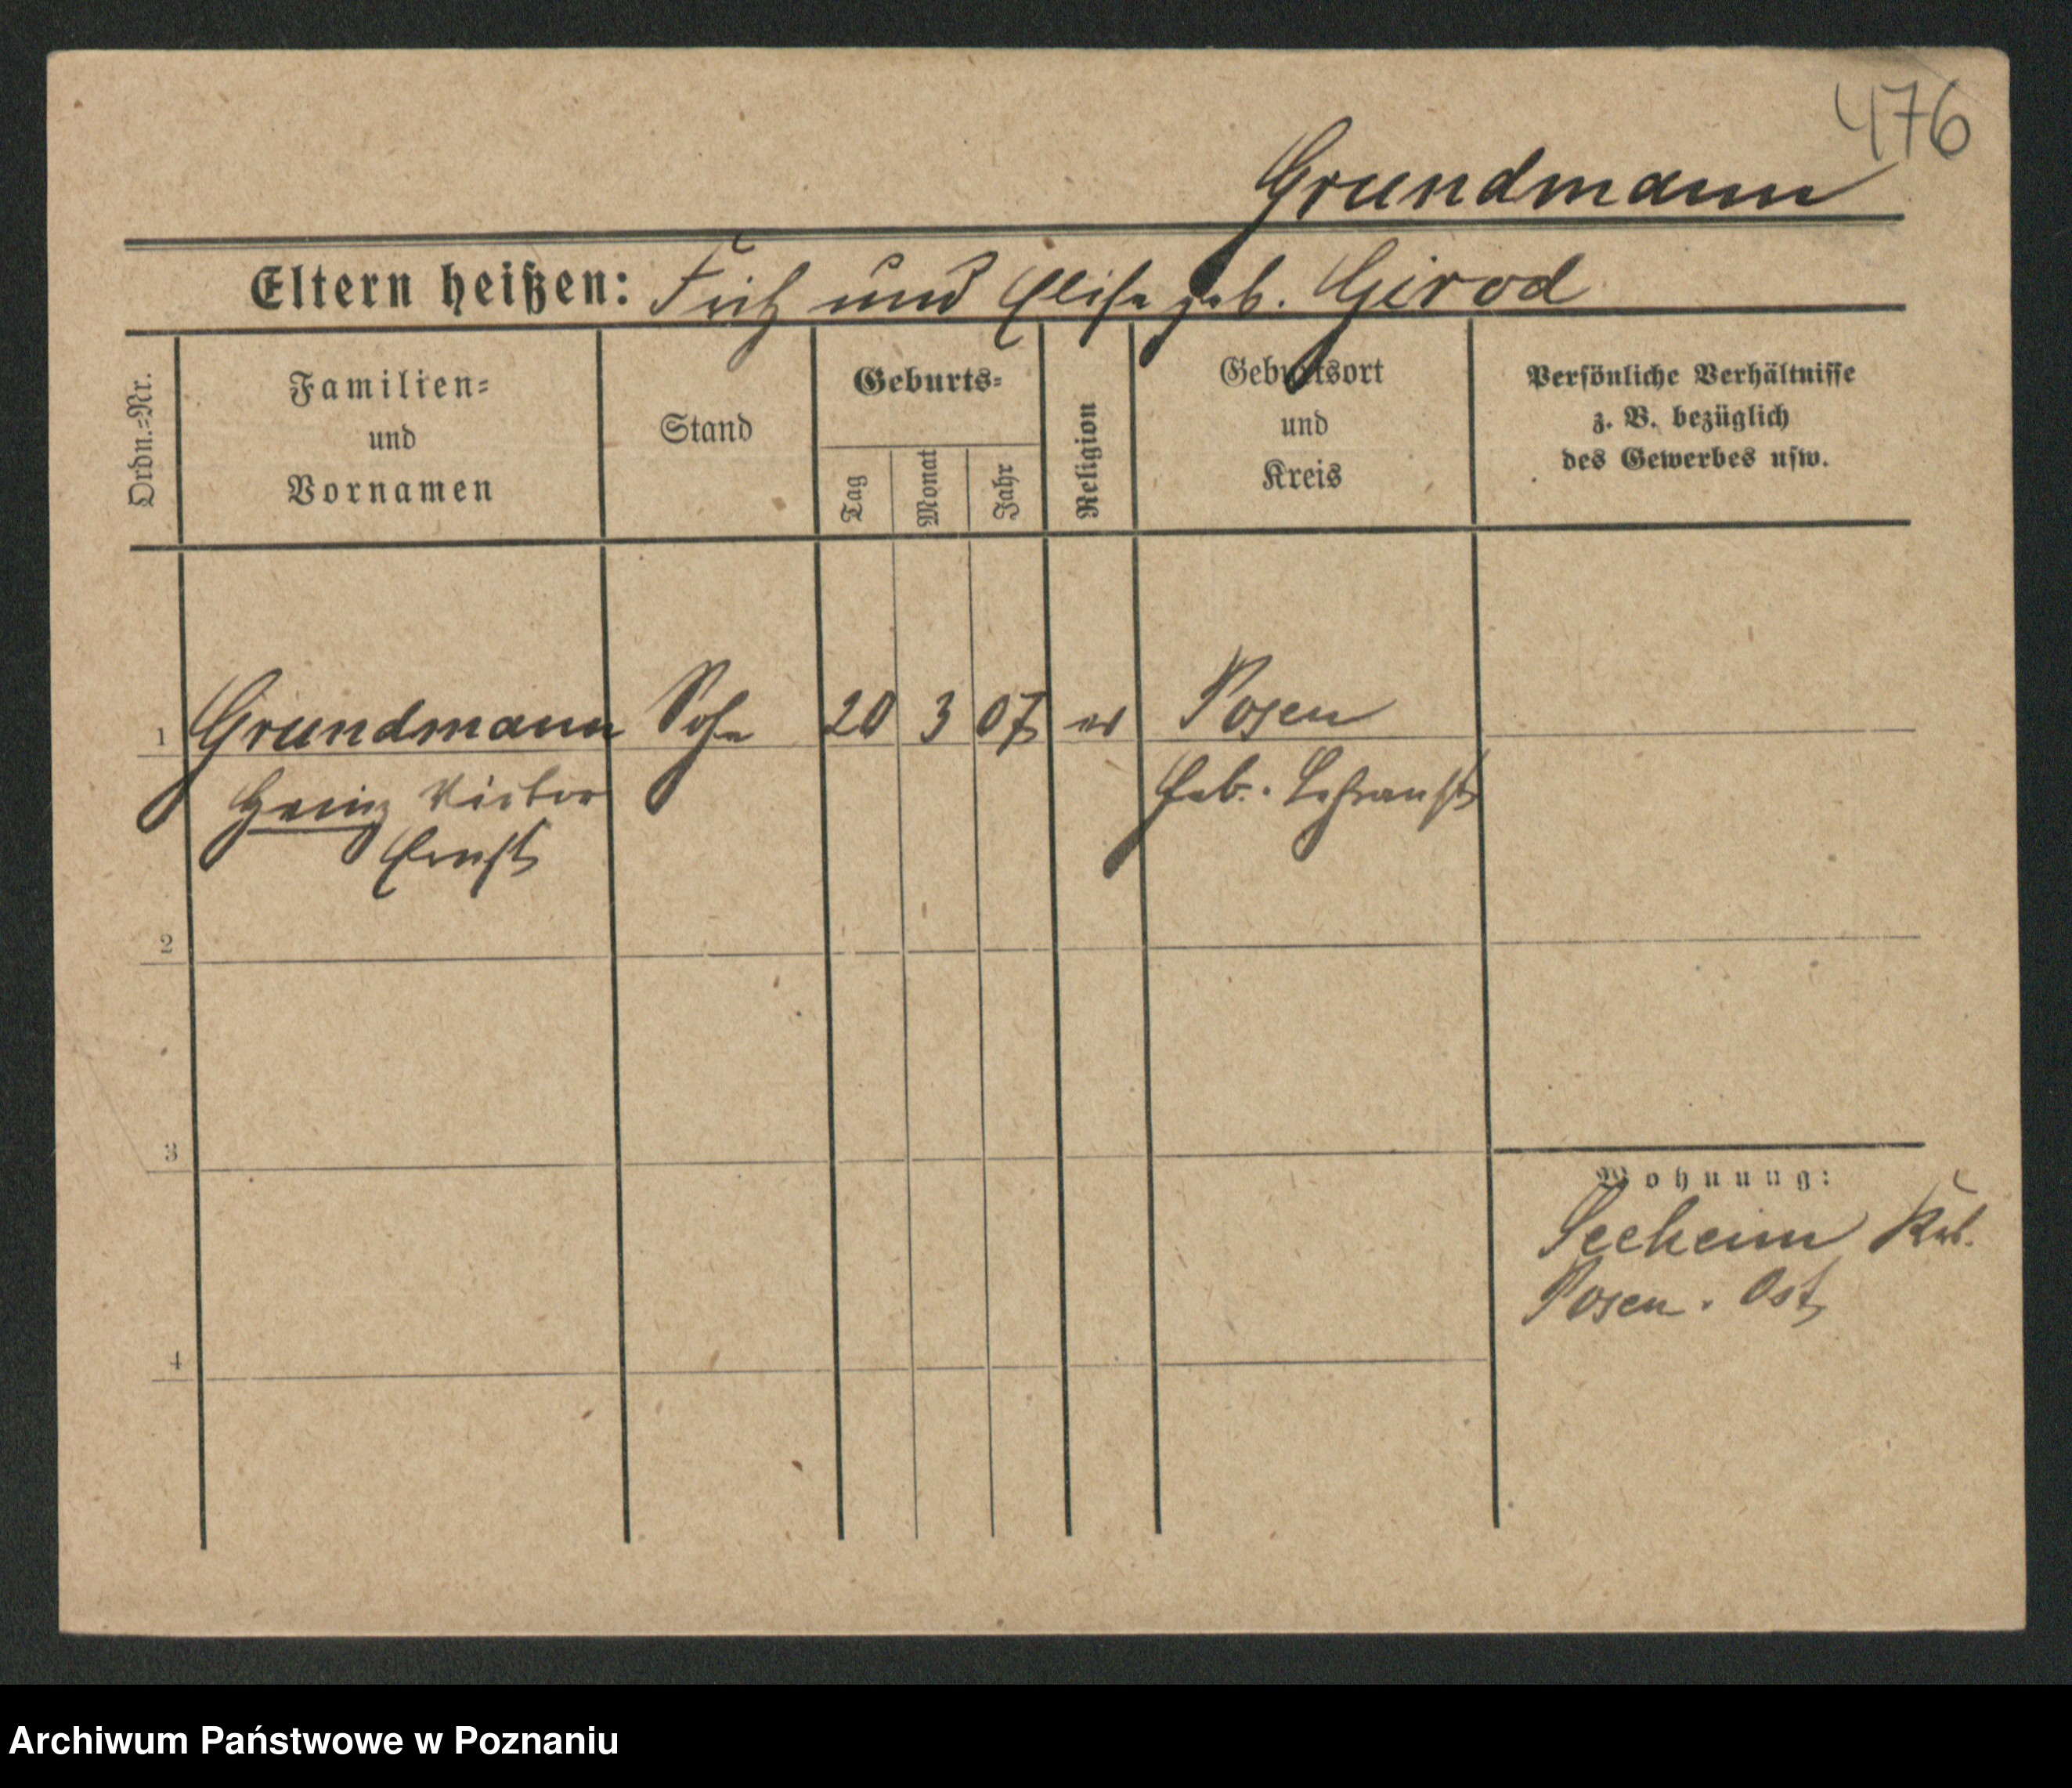 476
Grundmann
Eltern heißen: Fritz und Elise geb. Girod
Ordn.-Nr.
Familien-
und
Vornamen
Stand
Geburts-
Tag
Monat
Jahr
Religion
Geburtsort
und
Kreis
Persönliche Verhältnisse
z. B. bezüglich
des Gewerbes usw.
1 Grundmann Sohn 20 3 07 ev Posen
Heinz Victor Geb. Lehranst
Ernst
2
3
Wohnung:
Seeheim
Posen. Ost
4
Archiwum Państwowe w Poznaniu